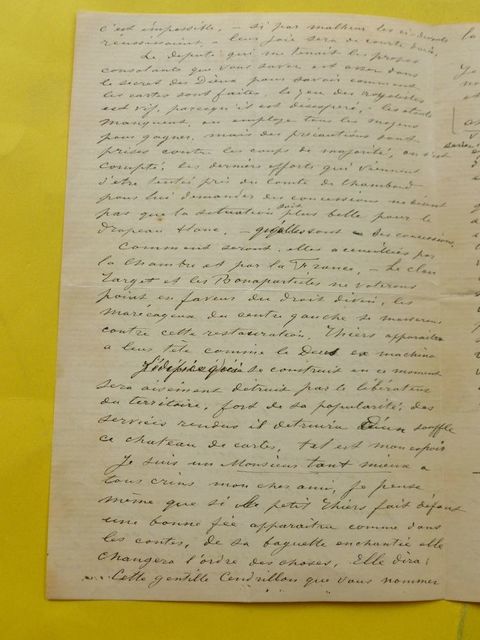 c'est impossible, – si par malheur les ci-devants
réussissaient, leur joie sera de courte durée,
Le député qui me tenait les propos
consolants que vous savez est assez dans
le secret des Dieux pour savoir comment
les cartes sont faites, le jeu des royalistes
est vif, parcequ'il est désespéré, les atouts
manquent, on employe tous les moyens
pour gagner, mais des précautions sont
prises contre les coups de majorité, on s'est
compté, les derniers efforts qui viennent
d'être tentés près du Comte de Chambord
pour lui demander des concessions ne disent
pas que la situation soit plus belle pour le
drapeau blanc, – sont – des concessions,
Comment seront elles accueillies par
la Chambre et par la France, – Le clan
Target et les Bonapartistes ne voterons
point en faveur du droit divin, les
marécageux du centre gauche se masserons
contre cette restauration, Thiers apparaitra
a leur tête comme le Deus ex machina
L'édifice qui se construit en ce moment
sera aisément détruit par le libérateur
du territoire, fort de sa popularité, des
services rendus il détruira d'un souffle
ce chateau de cartes, tel est mon espoir
Je suis un Monsieur tant mieux a
tous crins mon cher ami, je pense
même que si le petit Thiers fait défaut
une bonne fée apparaitra comme dans
les contes, de sa baguette enchantée elle
changera l'ordre des choses, Elle dira:
Cette gentille Cendrillon que vous nommez